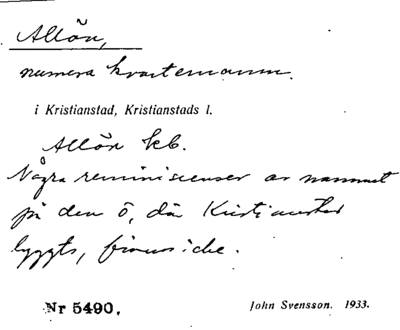 Allön,
numera kvartersnamn.
i Kristianstad, Kristianstads l.
Allön kb.
Några reminiscenser av namnet
på den ö, där Kristianstad
byggts, finns icke.
Nr 5490.
John Svensson. 1933.